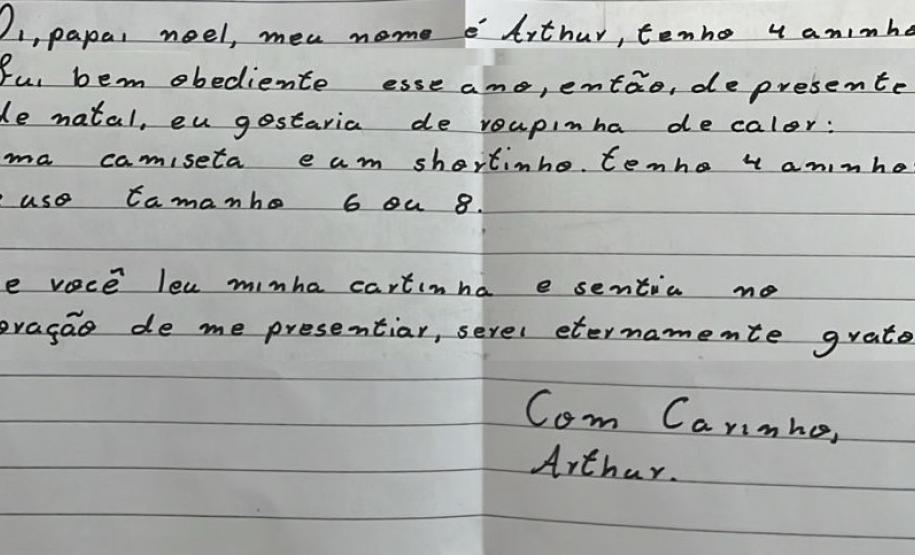 Oi, papai noel, meu nome é Arthur, tenho 4 aninho
Fui bem obediente esse ano, então, de presente
de natal, eu gostaria de roupinha de calor:
ma camiseta e um shortinho. tenho 4 aninho
uso tamanho 6 ou 8.
e você leu minha cartinha e sentiu no
oração de me presentiar, serei eternamente grato
Com Carinho,
Arthur.